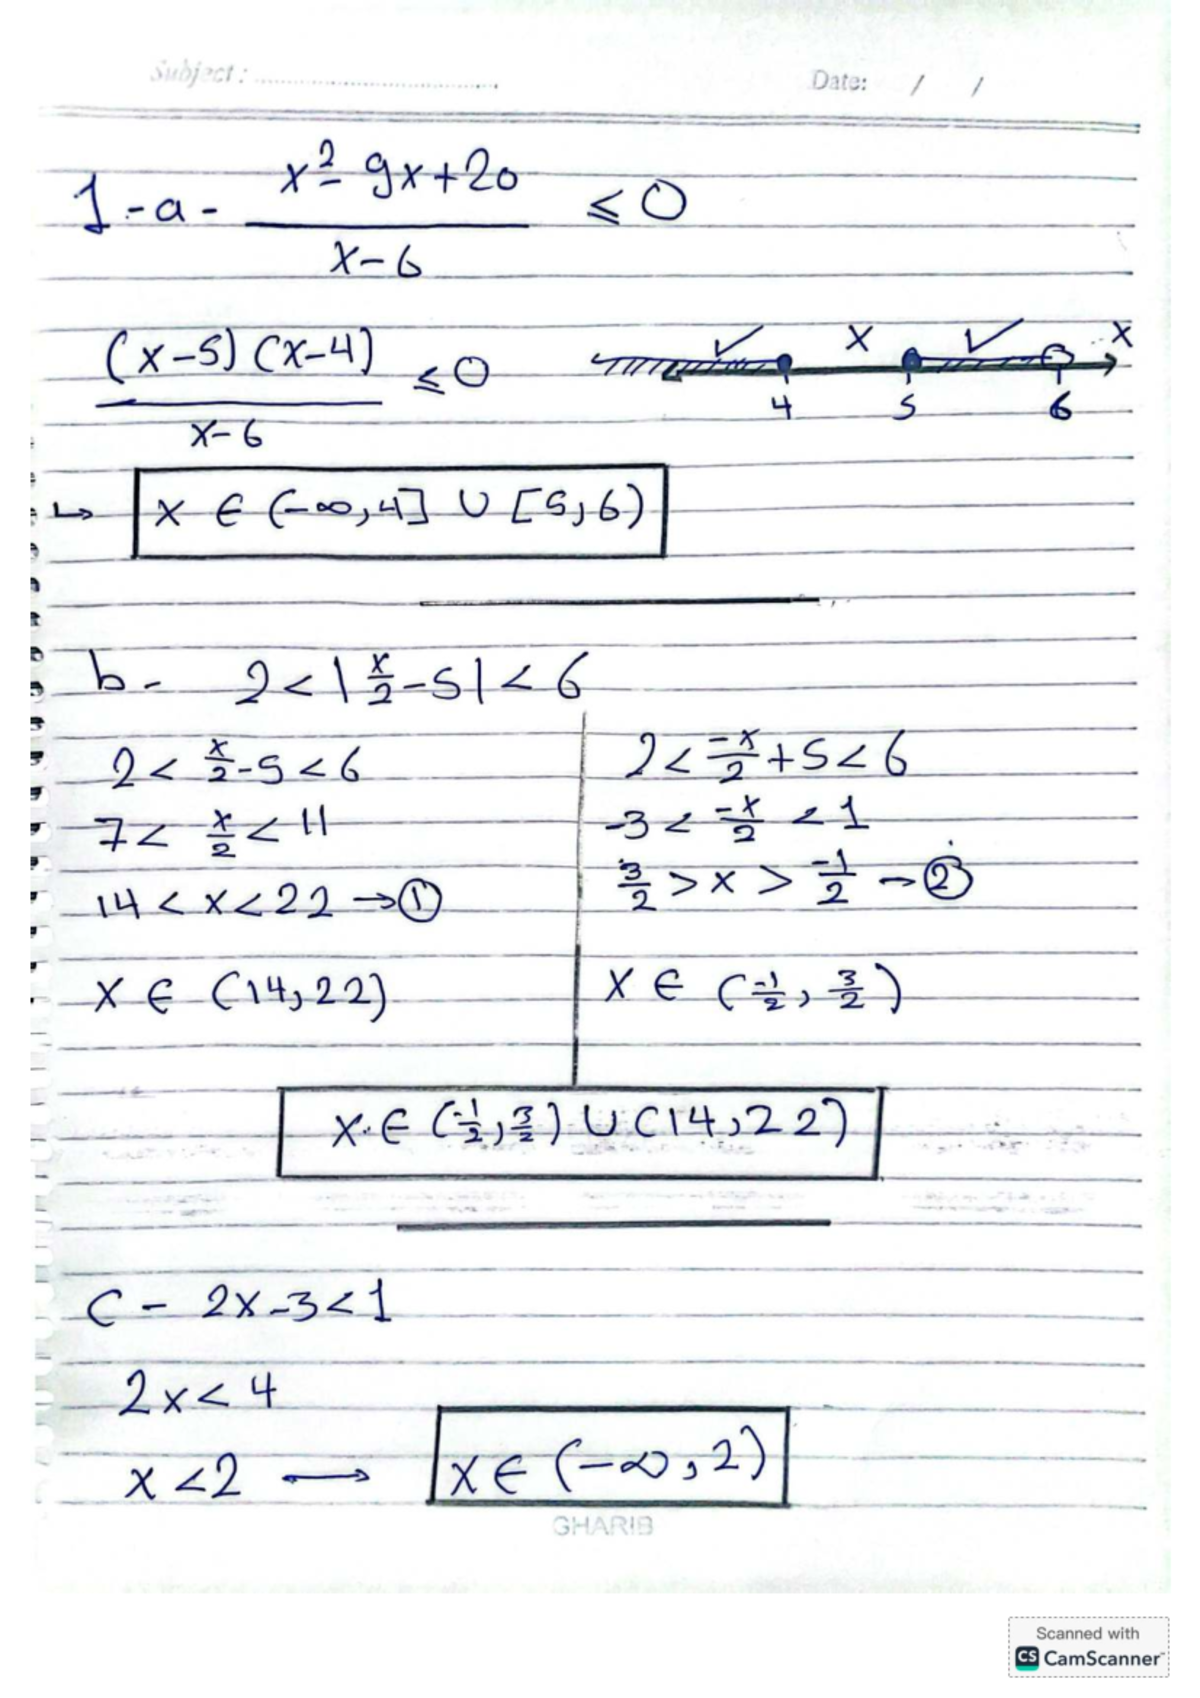 Subject : ........................ Date: / /
1-a- x²-9x+20 / x-6 ≤ 0
(x-5)(x-4) / x-6 ≤ 0
✓ x ✓ x
4 5 6
↳ x ∈ (-∞,4] ∪ [5,6)
b- 2<|x/2-5|<6
2< x/2-5<6
7< x/2<11
14<x<22 →①
x ∈ (14,22)
2<-x/2+5<6
-3<-x/2<1
3/2>x>-1/2 →②
x ∈ (-1/2,3/2)
x ∈ (-1/2,3/2) ∪ (14,22)
C- 2x-3<1
2x<4
x<2 → x∈(-∞,2)
GHARIB
Scanned with
CS CamScanner